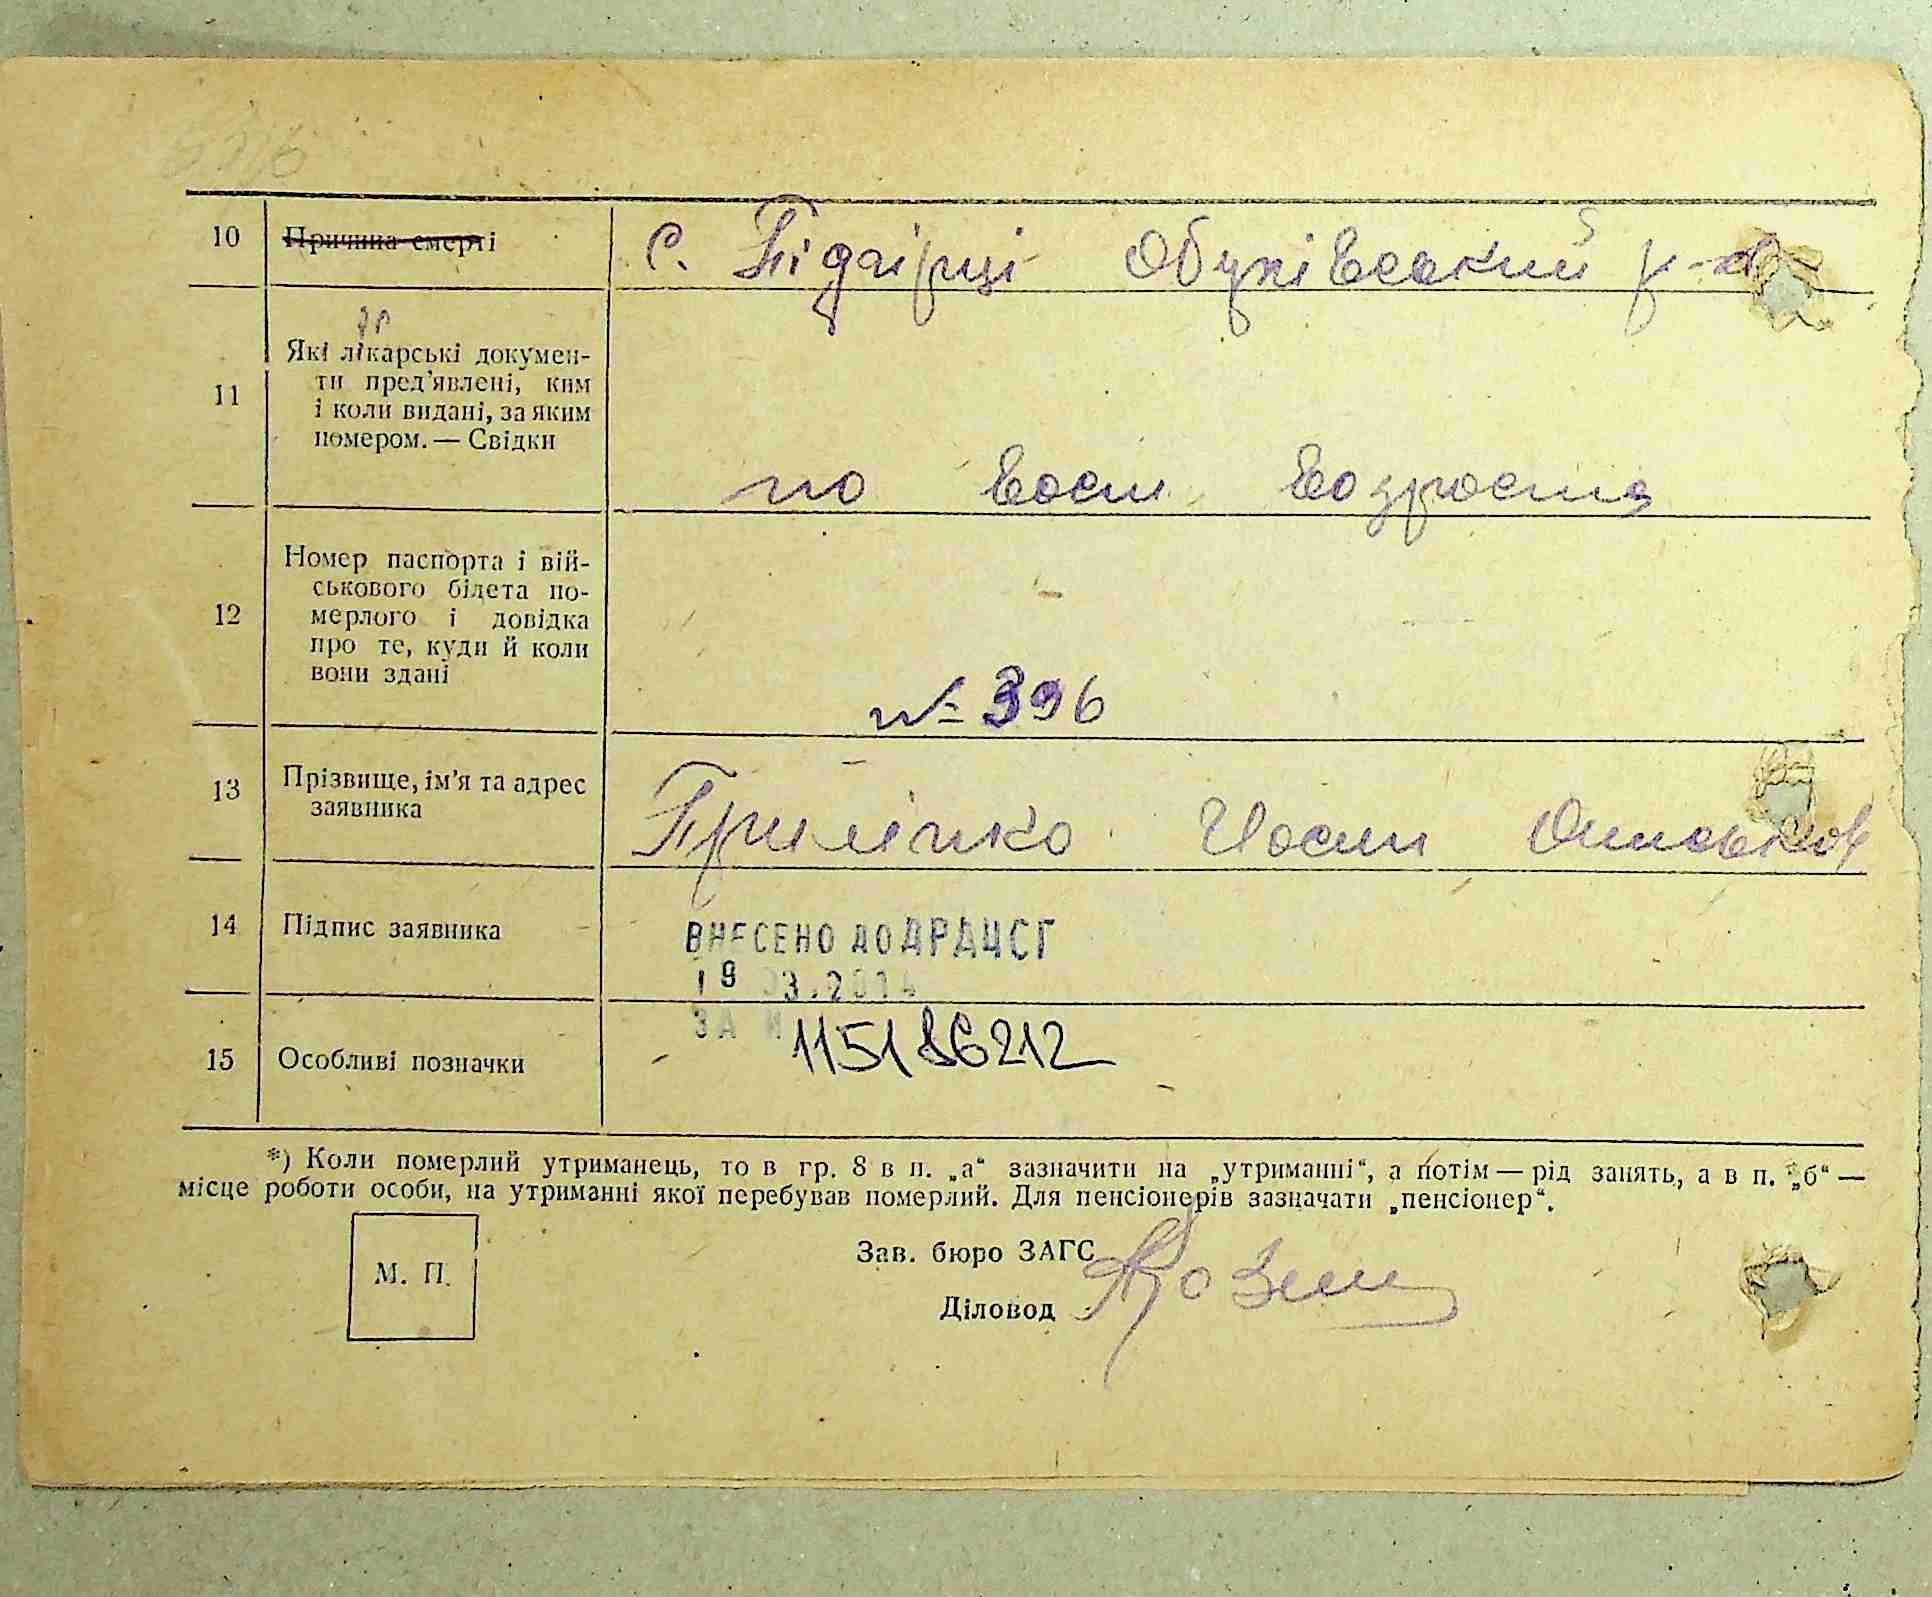 10 Причина смерті с. Підгірці Обухівський р-н
11 Які лікарські докумен-
ти пред'явлені, ким
і коли видані, за яким
номером. — Свідки
по восп. возроста
12 Номер паспорта і вій-
ськового білета по-
мерлого і довідка
про те, куди й коли
вони здані
№ 396
13 Прізвище, ім'я та адрес
заявника
Приліпко Иосип
14 Підпис заявника
ВНЕСЕНО ДО ДРАЦСГ
19 03.2014
ЗА №
115186212
15 Особливі позначки
*) Коли померлий утриманець, то в гр. 8 в п. „а“ зазначити на „утриманні“, а потім — рід занять, а в п. „б“ —
місце роботи особи, на утриманні якої перебував померлий. Для пенсіонерів зазначати „пенсіонер“.
М. П.
Зав. бюро ЗАГС
Діловод